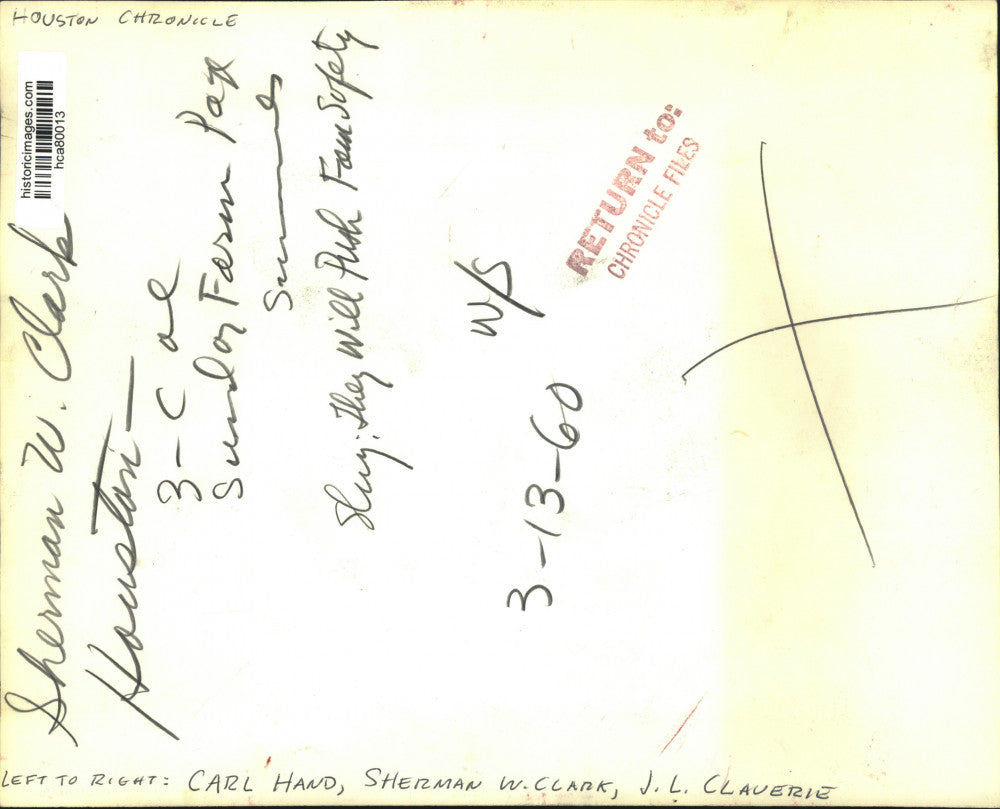 HOUSTON CHRONICLE
historicimages.com
hca80013
Sherman W. Clark
Houston—
3-C
Sunday Farm Page
Slug: They Will Push Farm Safety
W/S
3-13-60
RETURN to:
CHRONICLE FILES
LEFT TO RIGHT: CARL HAND, SHERMAN W. CLARK, J. L. CLAVERIE